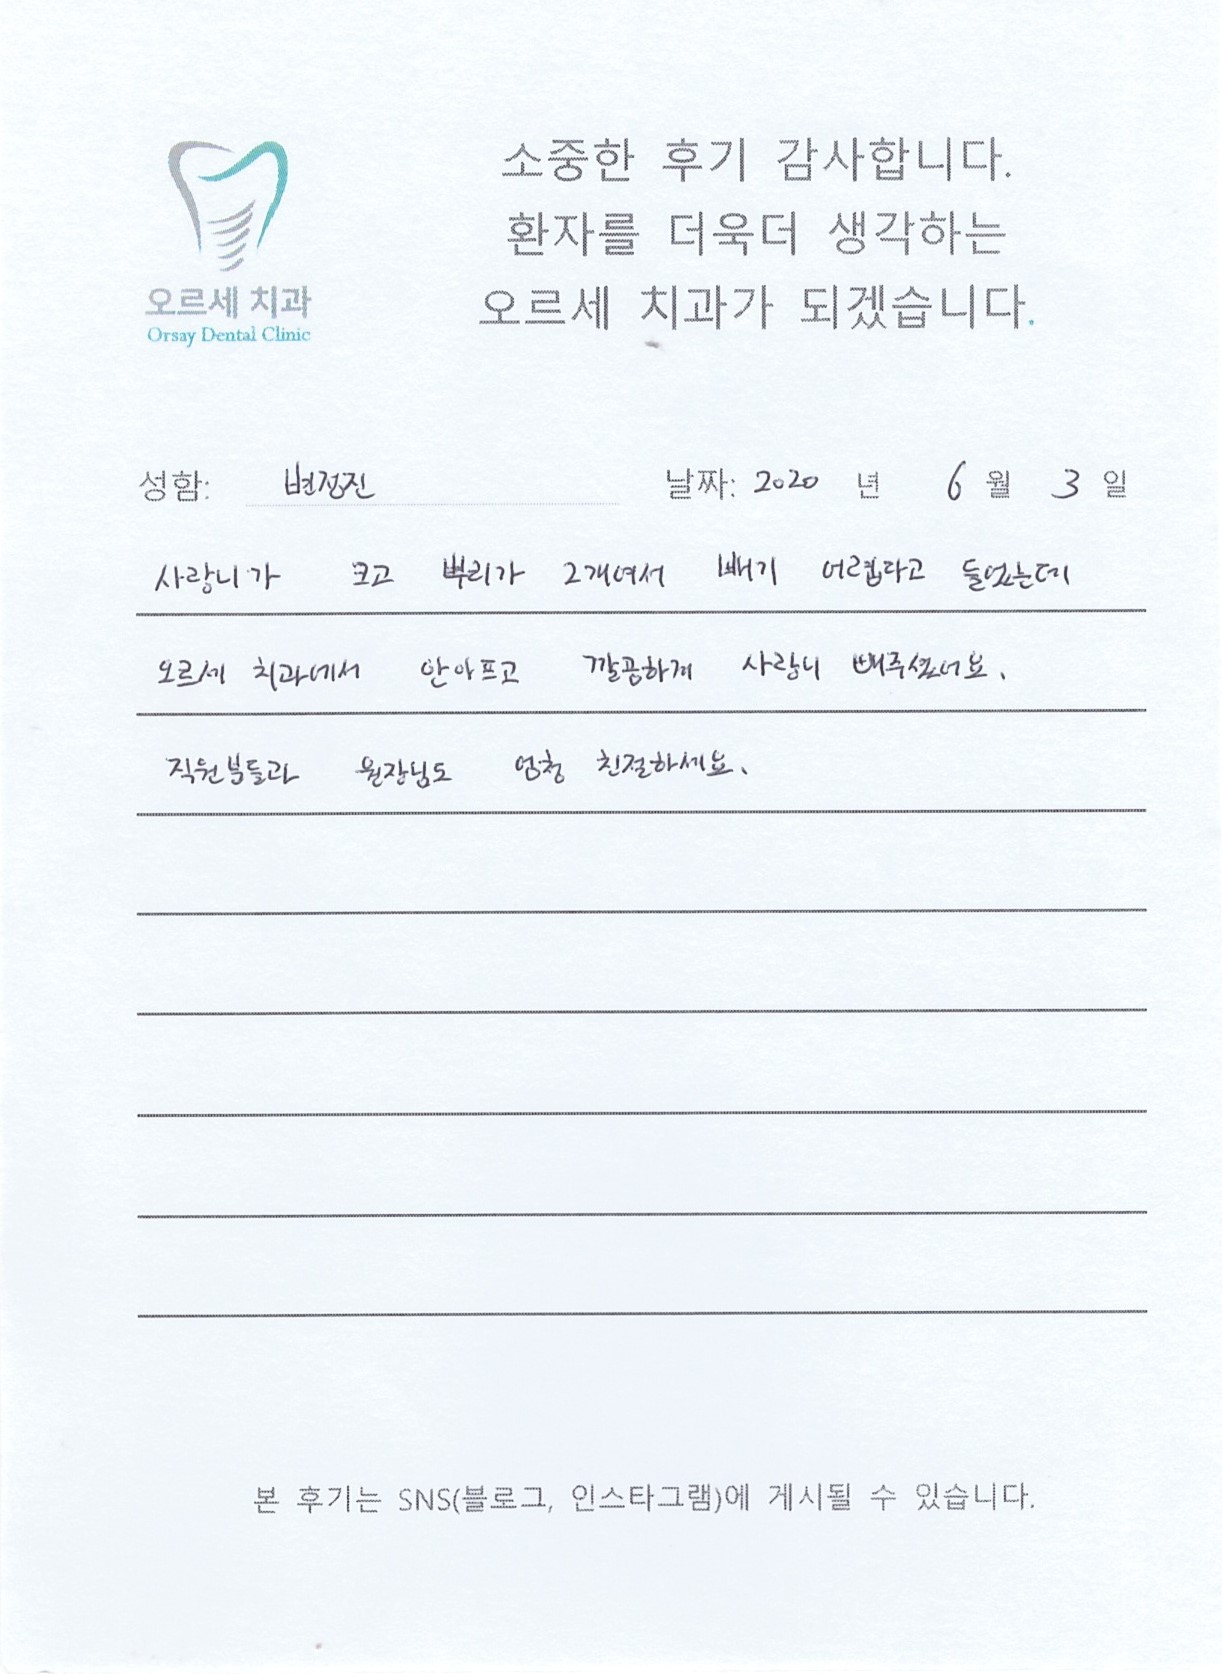 소중한 후기 감사합니다.
환자를 더욱더 생각하는
오르세 치과가 되겠습니다.
오르세 치과
Orsay Dental Clinic
성함: 변정진 날짜: 2020 년 6 월 3 일
사랑니가 크고 뿌리가 2개여서 빼기 어렵다고 들었는데
오르세 치과에서 안아프고 깔끔하게 사랑니 빼주셨어요.
직원분들과 원장님도 엄청 친절하세요.
본 후기는 SNS(블로그, 인스타그램)에 게시될 수 있습니다.